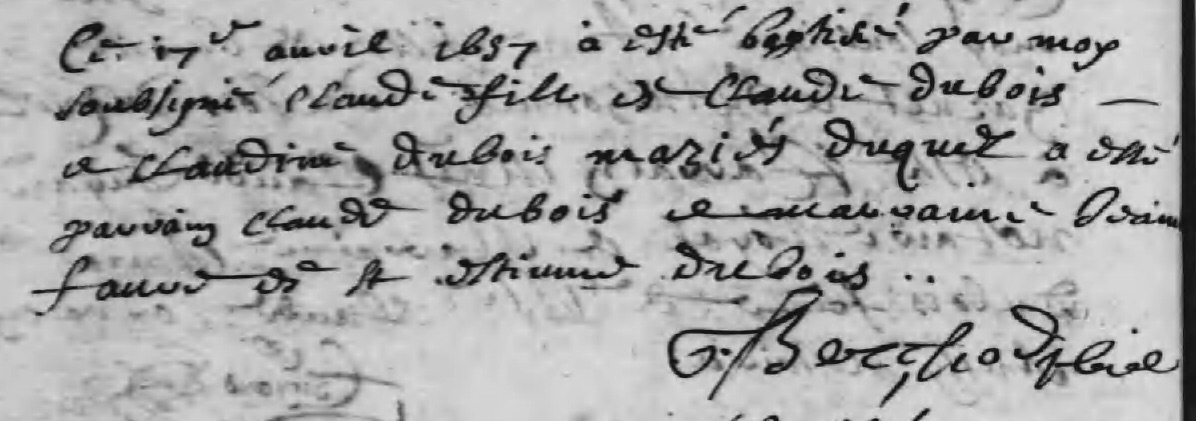 Ce 17e avril 1657 a esté baptisé par moy
soubsigné Claude fille de Claude dubois
et Claudine dubois mariés duquel a esté
parrain Claude dubois et marraine
faure de st estienne dubois